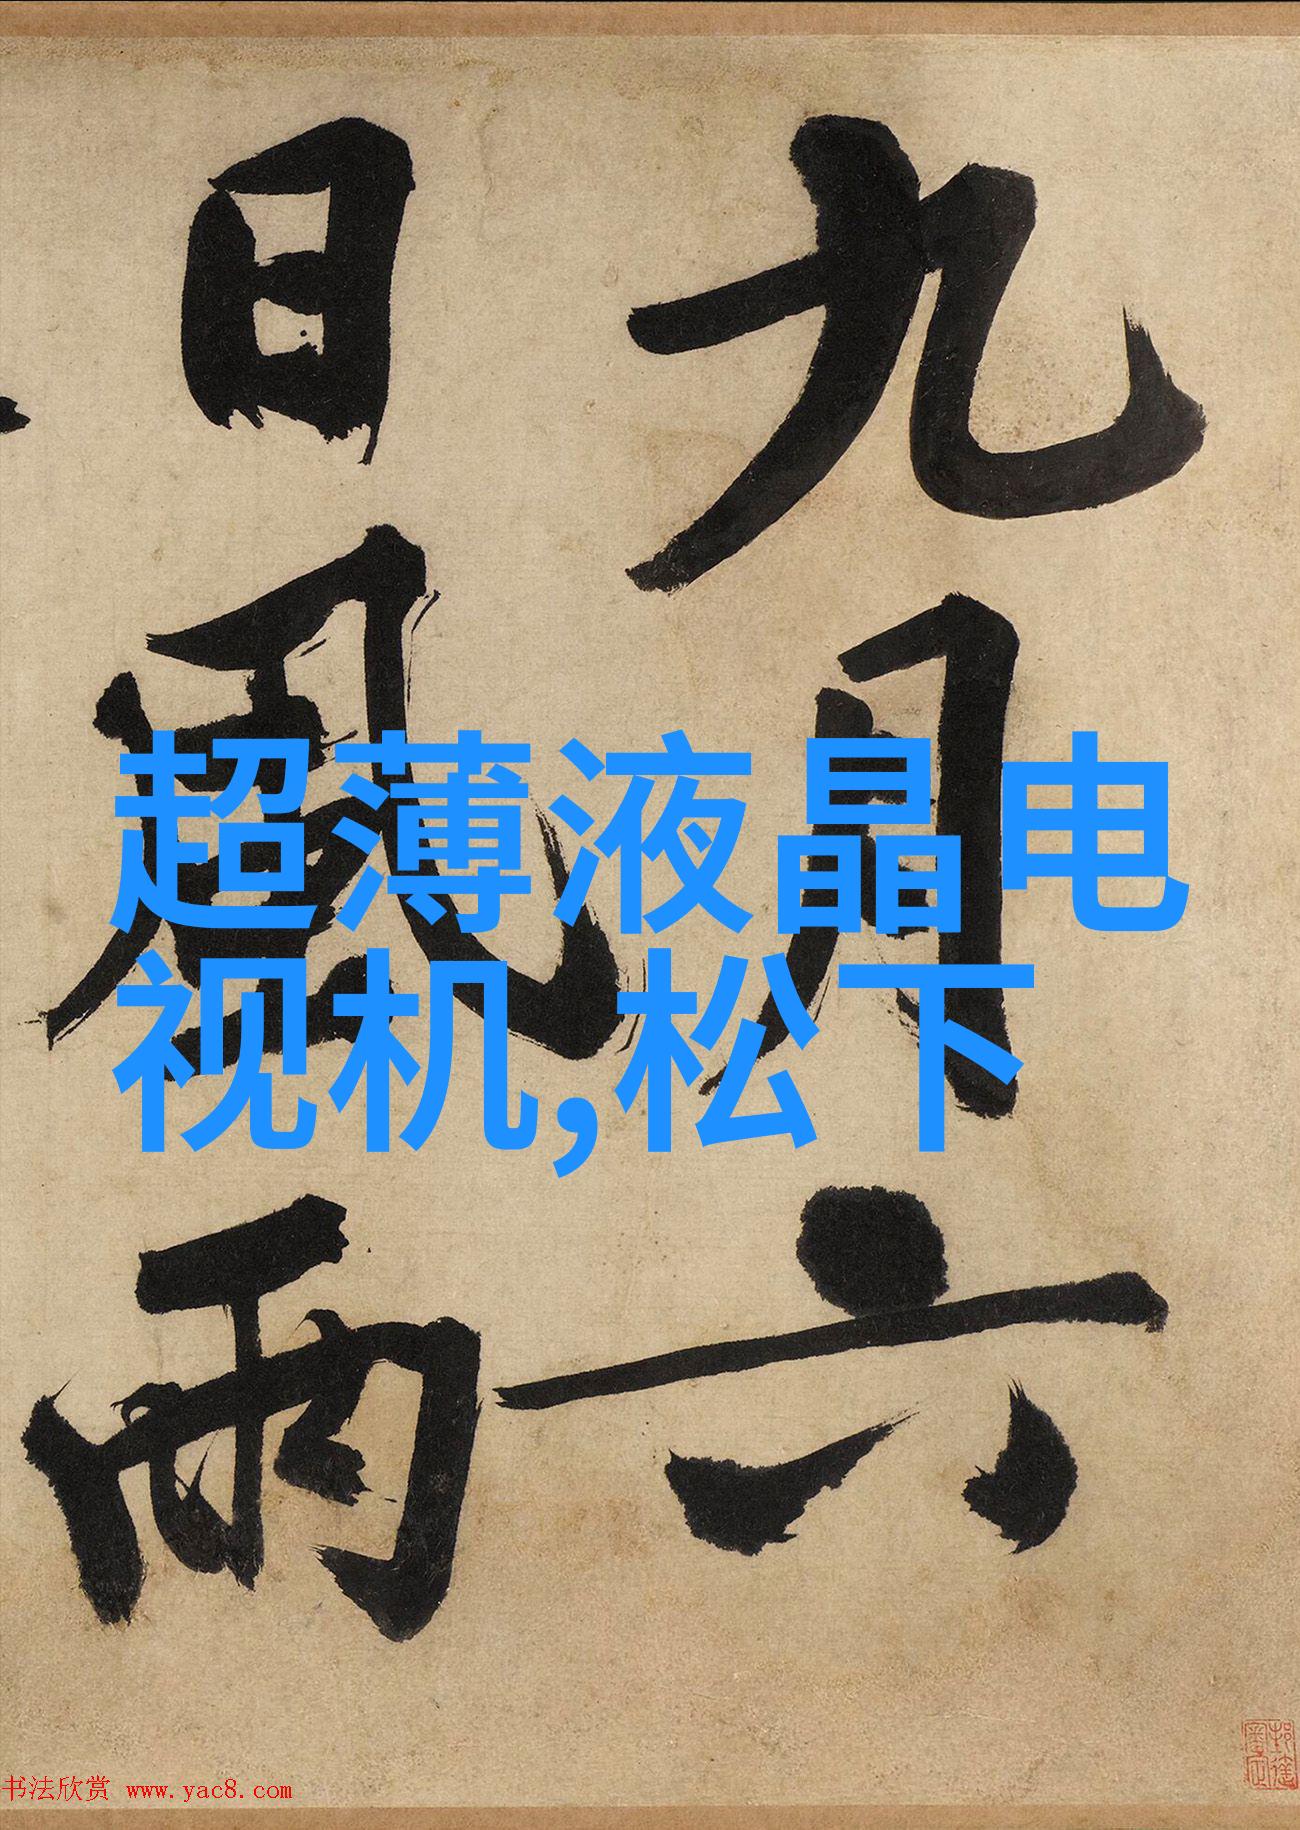 九月六
日風雨
超薄液晶电
视机,松下
书法欣赏 www.yac8.com